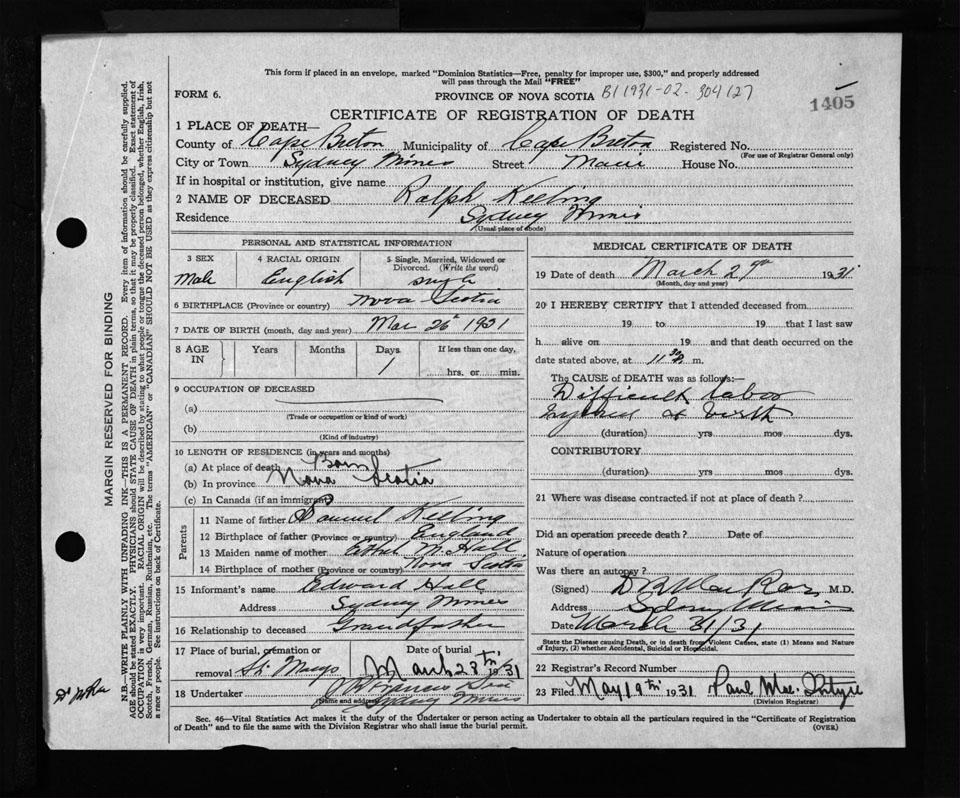 This form if placed in an envelope, marked "Dominion Statistics—Free, penalty for improper use, $300," and properly addressed
will pass through the Mail "FREE"
FORM 6.
PROVINCE OF NOVA SCOTIA B1 1931-02-304127
1405
CERTIFICATE OF REGISTRATION OF DEATH
1 PLACE OF DEATH—
County of Cape Breton Municipality of Cape Breton Registered No.
(For use of Registrar General only)
City or Town Sydney Mines Street Main House No.
If in hospital or institution, give name
2 NAME OF DECEASED Ralph Keeling
Residence Sydney Mines
(Usual place of abode)
PERSONAL AND STATISTICAL INFORMATION
3 SEX
Male
4 RACIAL ORIGIN
English
5 Single, Married, Widowed or
Divorced. (Write the word)
single
6 BIRTHPLACE (Province or country) Nova Scotia
7 DATE OF BIRTH (month, day and year) Mar 26 1931
8 AGE IN
Years Months Days If less than one day,
1 hrs. or min.
9 OCCUPATION OF DECEASED
(a)
(Trade or occupation or kind of work)
(b)
(Kind of industry)
10 LENGTH OF RESIDENCE (in years and months)
(a) At place of death Born
(b) In province Nova Scotia
(c) In Canada (if an immigrant)
Parents
11 Name of father Samuel Keeling
12 Birthplace of father (Province or country) England
13 Maiden name of mother Ethel M Hall
14 Birthplace of mother (Province or country) Nova Scotia
15 Informant's name Edward Hall
Address Sydney Mines
16 Relationship to deceased Grandfather
17 Place of burial, cremation or
removal March 28th 1931
18 Undertaker
(Name and address) Sydney Mines
MEDICAL CERTIFICATE OF DEATH
19 Date of death March 27th 1931
(Month, day and year)
20 I HEREBY CERTIFY that I attended deceased from
19 to 19 that I last saw
h alive on 19 and that death occurred on the
date stated above, at 11 m.
The CAUSE of DEATH was as follows:—
Difficult labor
birth
(duration) yrs mos dys.
CONTRIBUTORY
(duration) yrs mos dys.
21 Where was disease contracted if not at place of death?
Did an operation precede death? Date of
Nature of operation
Was there an autopsy?
(Signed) M.D.
Address Sydney Mines
Date March 31/31
State the Disease causing Death, or in death from Violent Causes, state (1) Means and Nature
of Injury, (2) whether Accidental, Suicidal or Homicidal.
22 Registrar's Record Number
23 Filed May 19th 1931
(Division Registrar)
Sec. 46—Vital Statistics Act makes it the duty of the Undertaker or person acting as Undertaker to obtain all the particulars required in the "Certificate of Registration
of Death" and to file the same with the Division Registrar who shall issue the burial permit.
(OVER)
MARGIN RESERVED FOR BINDING
N.B.—WRITE PLAINLY WITH UNFADING INK—THIS IS A PERMANENT RECORD. Every item of information should be carefully supplied.
AGE should be stated EXACTLY. PHYSICIANS should STATE CAUSE OF DEATH in plain terms, so that it may be properly classified. Exact statement of
OCCUPATION is very important. RACIAL ORIGIN will be described by stating to what people or tongue the deceased person belonged, whether English, Irish,
Scotch, French, German, Russian, Ruthenian, etc. The terms "AMERICAN" or "CANADIAN" SHOULD NOT BE USED as they express citizenship but not
a race or people. See instructions on back of Certificate.